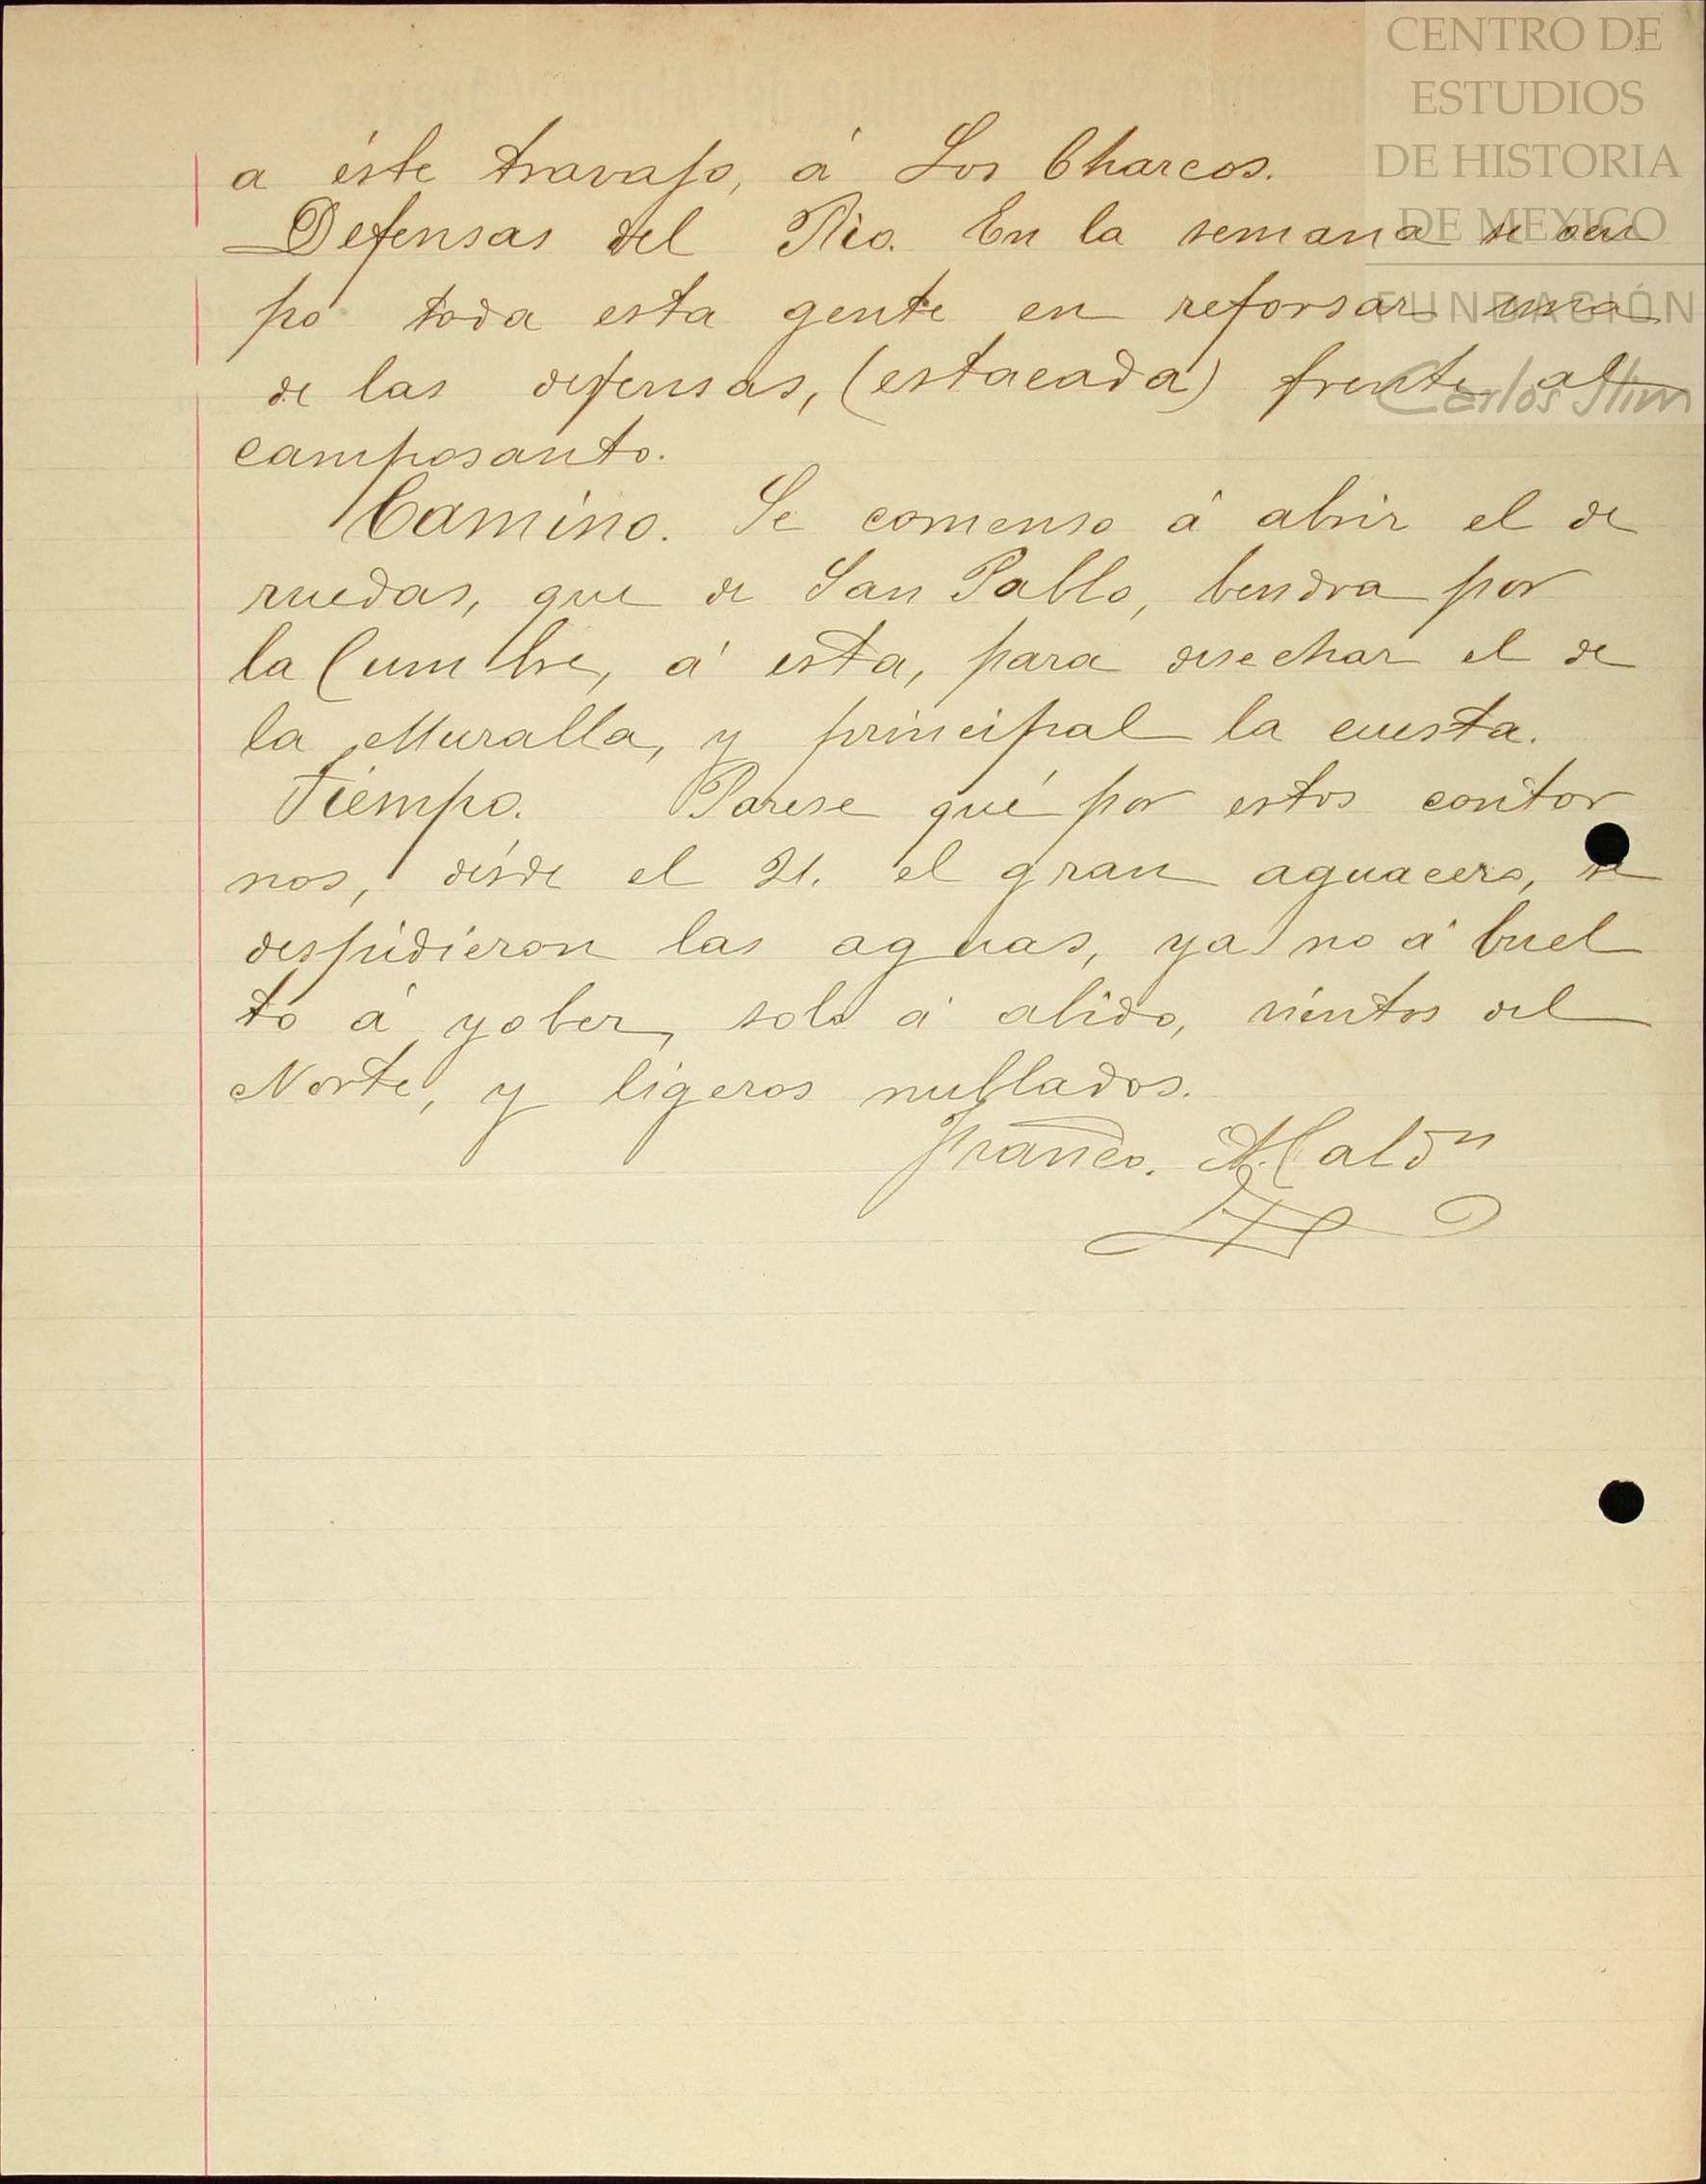 CENTRO DE
ESTUDIOS
DE HISTORIA
DE MEXICO
FUNDACIÓN
Carlos Slim
a éste travajo, á Los Charcos.
Defensas del Rio. En la semana se ocu
pó toda esta gente en reforsar una
de las defensas, (estacada) frente al
camposanto.
Camino. Se comenso á abrir el de
ruedas, que de San Pablo, bendra por
la Cumbre, á esta, para desechar el de
la Muralla, y principal la cuesta.
Tiempo. Parese qué por estos contor
nos, desde el 21. el gran aguacero, se
despidieron las aguas, ya no á buel
to á yober, solo á abido, vientos del
Norte, y ligeros nublados.
Franco. M. Maldn